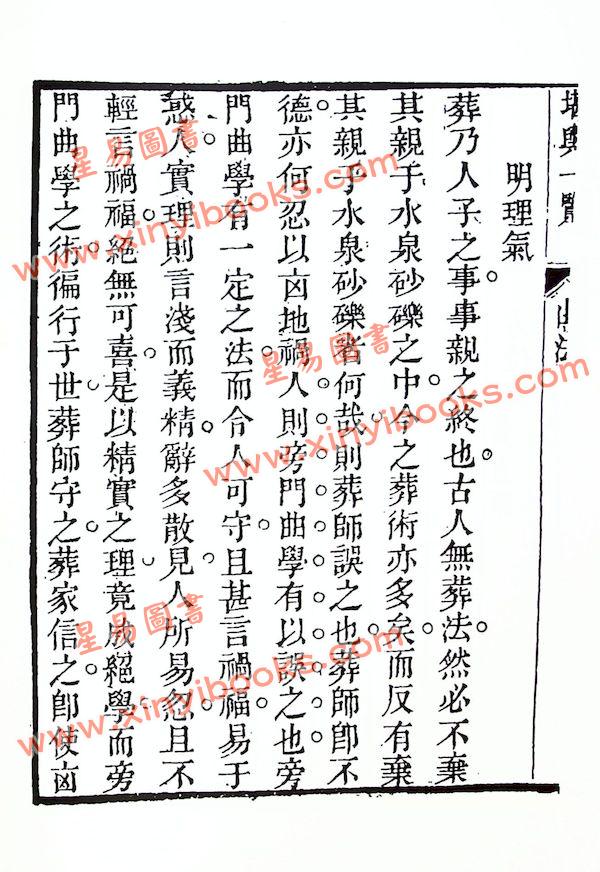 堪輿一覽
明理氣
葬乃人子之事事親之終也古人無葬法然必不棄
其親于水泉砂礫之中今之葬術亦多矣而反有棄
其親于水泉砂礫者何哉則葬師誤之也葬師卽不
德亦何忍以㐫地禍人則旁門曲學有以誤之也旁
門曲學有一定之法而令人可守且甚言禍福易于
惑人實理則言淺而義精辭多散見人所易忽且不
輕言禍福絕無可喜是以精實之理竟成絕學而旁
門曲學之術徧行于世葬師守之葬家信之卽使㐫
星易圖書
www.xinyibooks.com
星易圖書
www.xinyibooks.com
星易圖書
www.xinyibooks.com